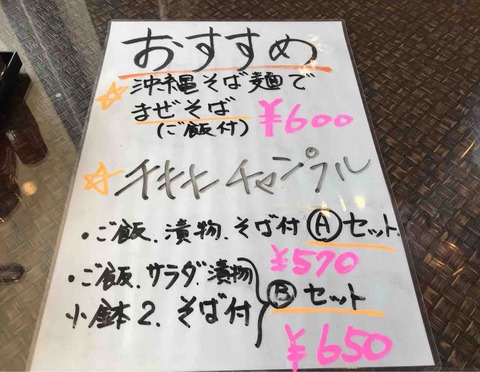 おすすめ
沖縄そば麺で
まぜそば
(ご飯付) ¥600
チキナーチャンプル
・ご飯.漬物.そば付 Ⓐセット
¥570
・ご飯.サラダ.漬物
小鉢2.そば付 Ⓑセット
¥650